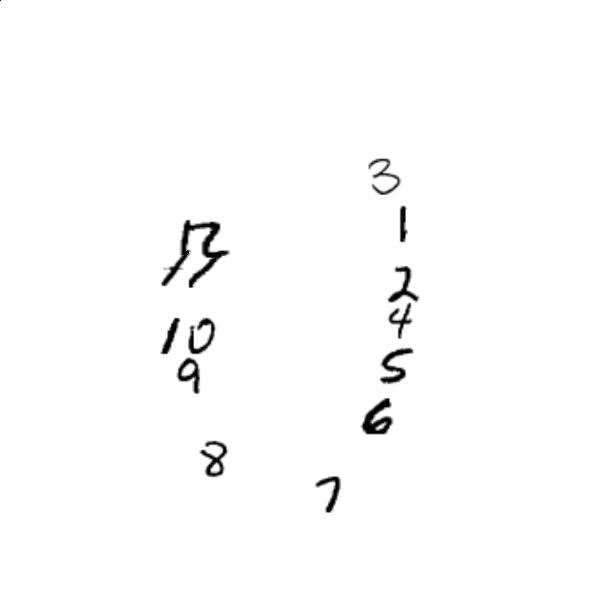 3
1
12
2
11
4
10
5
9
6
8
7